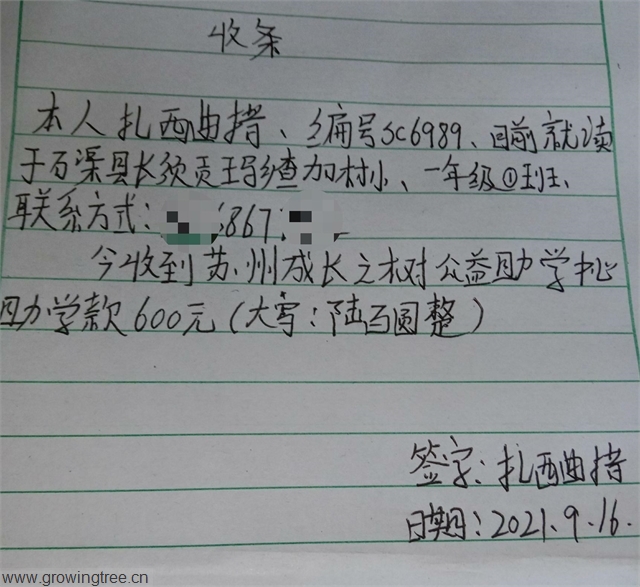 收条
本人扎西曲措、编号SC6989、目前就读
于石渠县长须贡玛乡查加村小、一年级①班、
联系方式: 867
今收到苏州成长之树公益助学
助学款600元(大写:陆百圆整)
签字:扎西曲措
日期:2021.9.16.
www.growingtree.cn